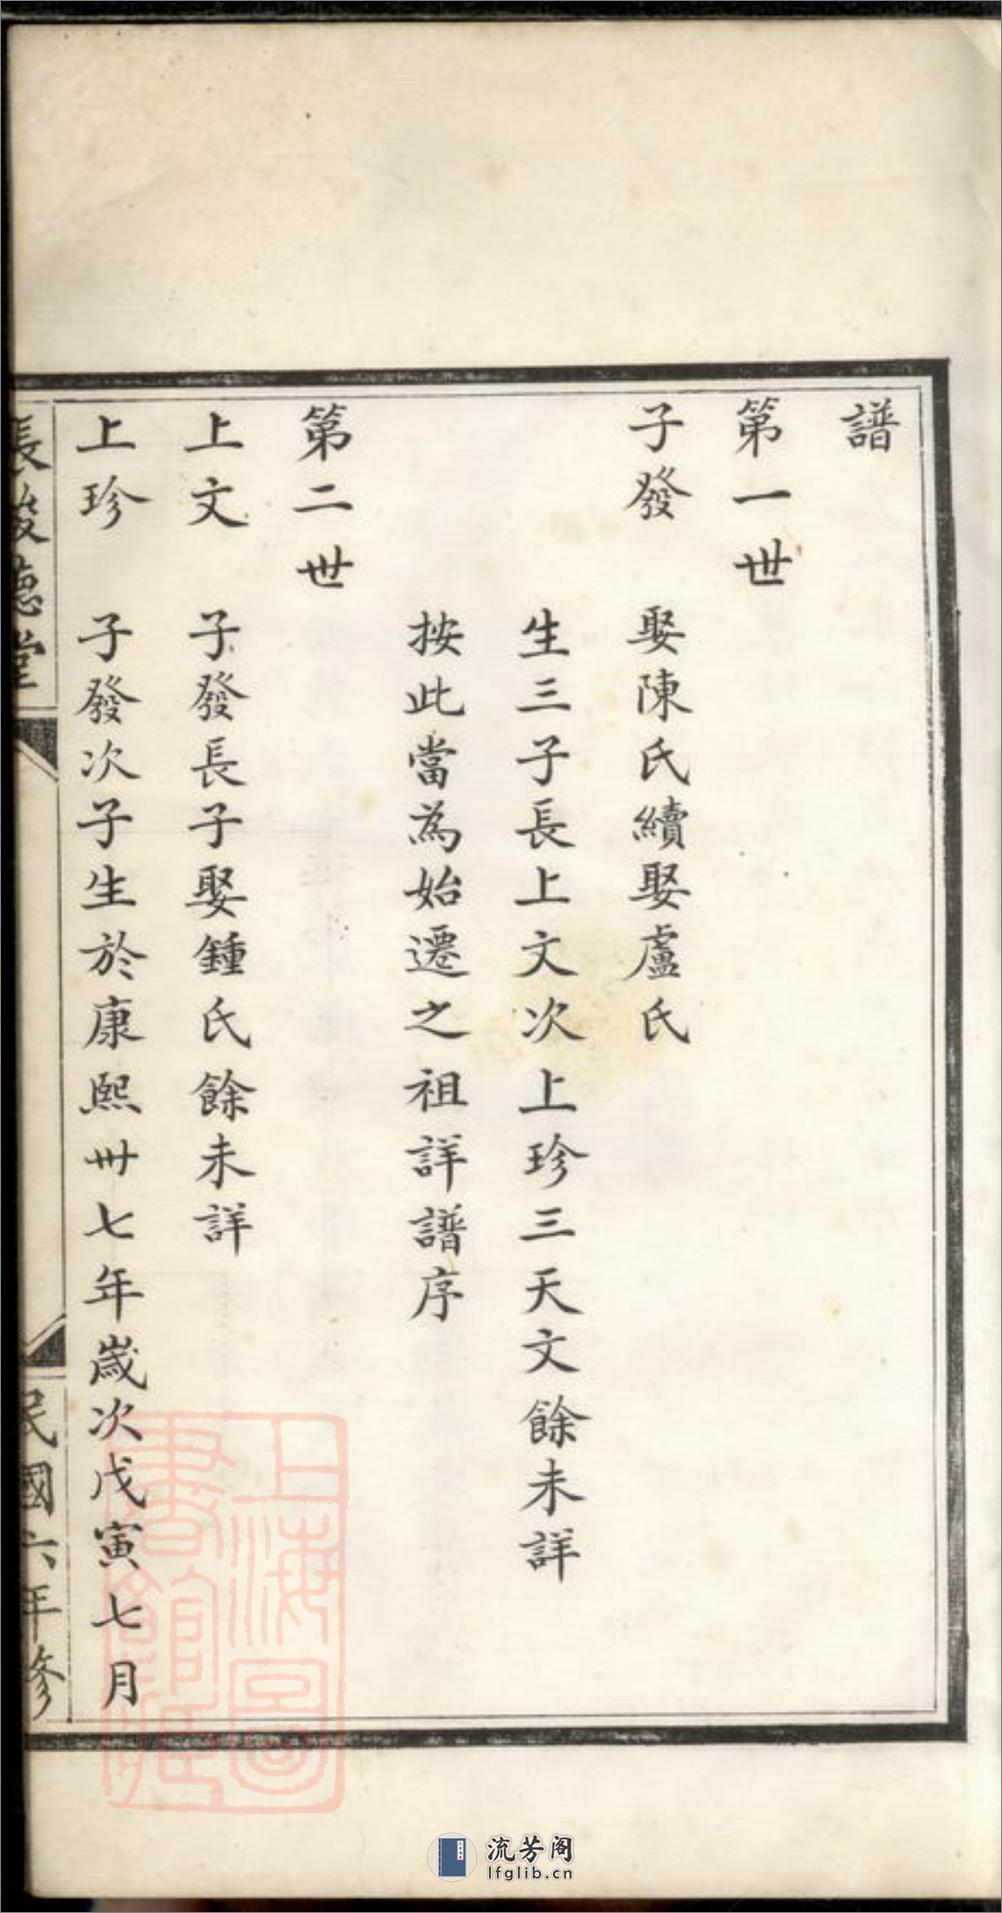 譜
第一世
子發 娶陳氏續娶盧氏
生三子長上文次上珍三天文餘未詳
按此當為始遷之祖詳譜序
第二世
上文 子發長子娶鍾氏餘未詳
上珍 子發次子生於康熙卅七年歲次戊寅七月
德堂
民國六年修
上海圖書館藏
流芳阁
lfglib.cn